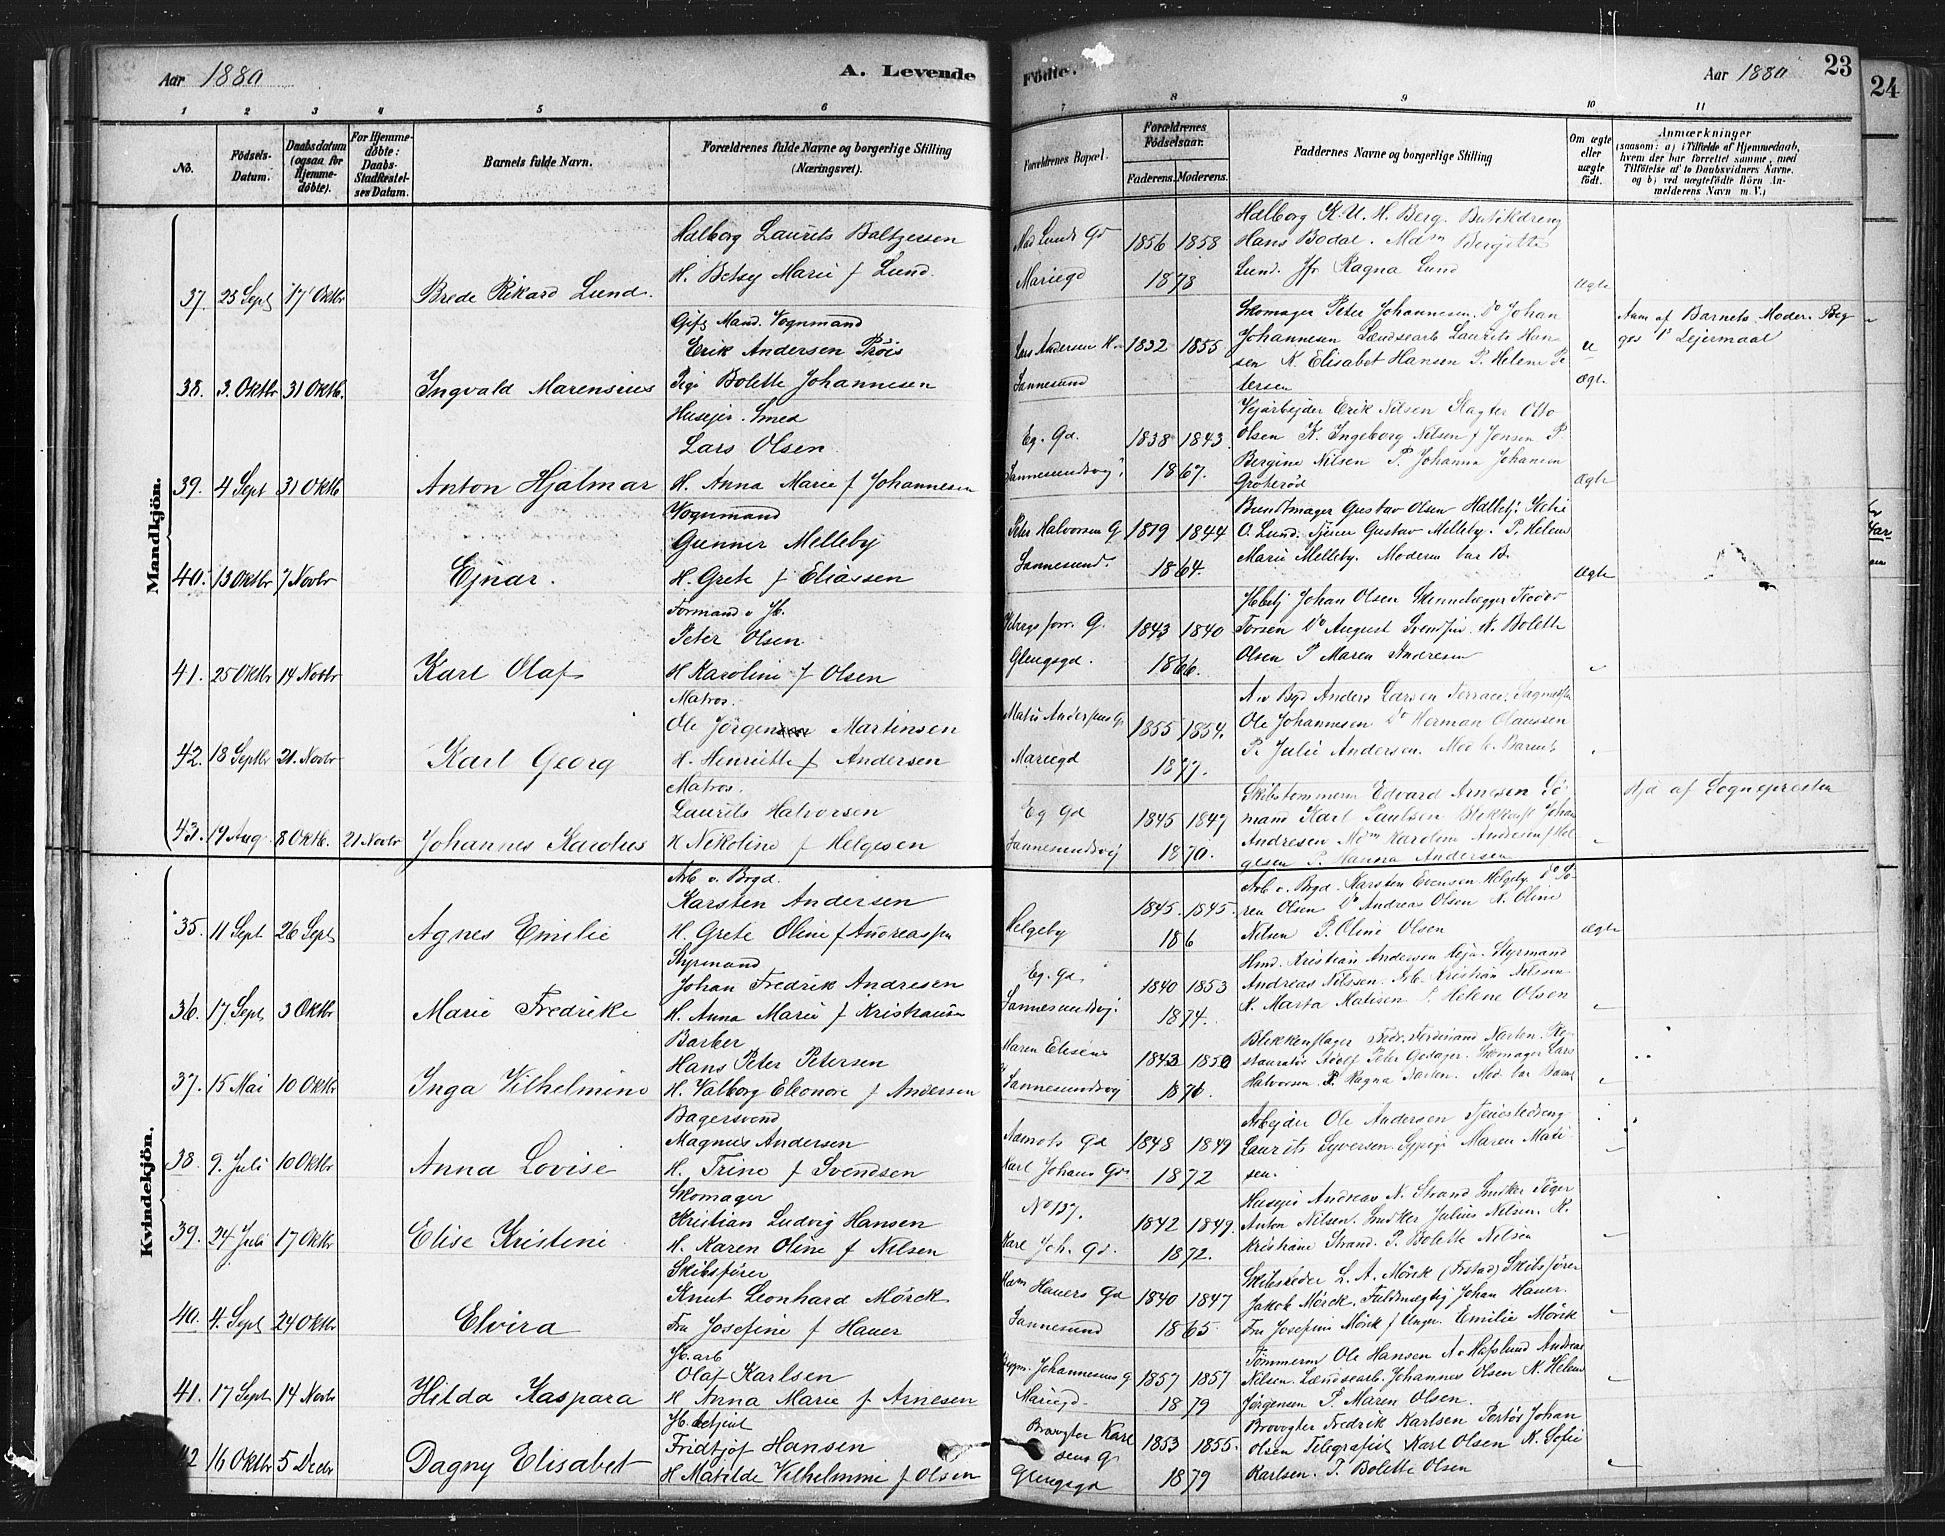 Aar 1880
A. Levende
Födte.
Aar 1880
23
24
1 2 3 4 5 6 7 8 9 10 11
No.
Födsels-Datum.
Daabsdatum (ogsaa for Hjemmedöbte).
For Hjemmedöbte: Daabs-Stadfæstelses Datum.
Barnets fulde Navn.
Forældrenes fulde Navne og borgerlige Stilling (Næringsvei).
Forældrenes Bopæl.
Forældrenes Födselsaar.
Faderens. Moderens.
Faddernes Navne og borgerlige Stilling
Om ægte eller uægte födt.
Anmærkninger
(saasom: a) i Tilfælde af Hjemmedaab, hvem der har forrettet samme, med Tilföielse af to Daabsvidners Navne. og b) ved uægtefödte Börn Anmelderens Navn m. V.)
Mandkjön.
Halborg Laurits Baltzersen
37. 25 Sept 17 Oktbr Brede Rikard Lund. H. Betsy Marie f Lund.
Mad Lunds Gd 1856 1858
Mariegd 1878
Halborg K. U. H. Berg. Butikdreng
Hans Bodal. Mdm Bergitte
Lund. Jfr Ragna Lund
Ægte
Gift Mand. Vognmand
Erik Andersen Pröis
38. 3. Oktbr 31 Oktb. Ingvald Marensius Pige Bolette Johannesen
Lars Andersen H 1832 1855
Sannesund
Skomager Peter Johannesen. Do Johan
Johannesen Landsearb Laurits Han-
sen K. Elisabet Hansen P. Helene Pe
tersen
U
Ægte
Anm af Barnets Moder. Beg
ges 1ste Lejermaal
Husejer. Smed
Lars Olsen
39. 4 Sept 31 Oktb Anton Hjalmar H. Anna Marie f Johannesen
Eg. Gd. 1838 1843
Sannesundsvej 1867.
Vejarbejder Erik Nilsen Slagter Otto
Olsen K. Ingeborg Nilsen f Jensen P.
Bergine Nilsen P. Johanna Johansen
Groteröd
Ægte
Vognmand
Gunner Melleby
40. 13 Oktbr 7 Novbr Ejnar. H. Grete f Eliassen
Peter Halvorsen G 1819 1844
Sannesund. 1864.
Buntmager Gustav Olsen
O. Lund. Tjener Gustav Melleby. P. Helene
Marie Melleby. Moderen bar B.
Ægte
Formand v Jb.
Peter Olsen
41. 25 Oktbr 14 Novbr Karl Olaf H Karoline f Olsen
1843 1840
Glengsgd. 1866.
Johan Olsen
Do August Svendsen K. Bolette
Olsen P Maren Andresen
Matros.
Ole Jörgen Martinsen
42. 18 Septbr 21. Novbr Karl Georg H. Henriette f Andersen
1855 1854.
Mariegd 1877.
A v Bgd Anders Larsen
Ole Johannesen Do Herman Olaussen
P. Julie Andersen. Mod b. Barnet
Matros.
Laurits Halvorsen
43. 19 Aug. 8 Oktb. 21 Novbr Johannes Karolus H Nikoline f Helgesen
Eg Gd 1845 1847
Sannesundsvej 1870.
Skibstømmerm Edvard Arnesen Sö-
mand Karl Paulsen Johan
Andresen Mdm Karoline Andresen f Hel
gesen P. Hanna Andersen
Hjd af Sognepresten
Kvindekjön.
Arb. v. Brgd.
Karsten Andersen
35. 11 Sept 26 Sept Agnes Emilie H. Grete Oline f Andreassen
1845. 1845.
Helgeby 186
Arb v. Brgd. Karsten Evensen Helgeby. Do Sö-
ren Olsen Do Andreas Olsen K. Oline
Nilsen P. Oline Olsen
Ægte
Styrmand
Johan Fredrik Andresen
36. 17 Sept 3 Oktbr Marie Fredrike H. Anna Marie f Kristiansen
Eg. Gd 1840 1853
Sannesundsvej. 1874.
Hmd. Kristian Andersen Styrmand
Andreas Nilssen. Arb. Kristian Nilsen
K. Marta P. Helene Olsen
Barker
Hans Peter Petersen
37. 15 Mai 10 Oktbr Inga Vilhelmine H. Valborg Eleonore f Andersen
Maren Elisens 1843 1850
Sannesundsvej 1876.
Blikkenslager Fredr. Ferdinand Narten. Re-
stauratör Adolf Peter Skomager Lars
Halvorsen P. Ragna Mod. bar Barnet
Bagersvend
Magnus Andersen
38. 9. Juli 10 Oktbr Anna Lovise H. Trine f Svendsen
Aamots Gd 1848 1849
Karl Johans Gd 1872
Arbejder Ole Andersen Tjenestedreng
Laurits Syversen. Sypige Maren Mati
sen.
Skomager
Kristian Ludvig Hansen
39. 24 Juli 17 Oktbr Elise Kristine H. Karen Oline f Nilsen
No 137. 1842 1849.
Karl Joh. Gd. 1872.
Husejer Andreas N. Strand
Anton Nilsen. Snedker Julius Nilsen. K.
Kristiane Strand. P. Bolette Nilsen
Skibsförer
Knut Leonhard Mörck
40. 4. Sept 24 Oktbr Elvira Fru Josefine f Hauer
Hauers Gd 1840 1847
Sannesund 1865
Skibsreder L. A. Mörck (Frstad) Skibsförer
Jakob Mörck. Fuldmægtig Johan Hauer.
Fru Josefine Mörck f Unger. Emilie Mörck
Jb. arb
Olaf Karlsen
41. 17 Sept 14 Novbr Hilda Kaspara H Anna Marie f Arnesen
Johannesens G 1857 1857
Mariegd. 1879
Tömmerm Ole Hansen A v Hafslund Andreas
Nilsen. Landsearb. Johannes Olsen K. Helene
Jörgensen P. Maren Olsen.
Jb. betjent
Fridtjof Hansen
42 16 Oktbr 5 Decbr Dagny Elisabet H Matilde Vilhelmine f Olsen
Brovogter Karl
sens G 1853 1855.
Glengsgd 1879
Brovogter Fredrik Karlsen Johan
Olsen Telegrafist Karl Olsen K. Sofie
Karlsen. P. Bolette Olsen